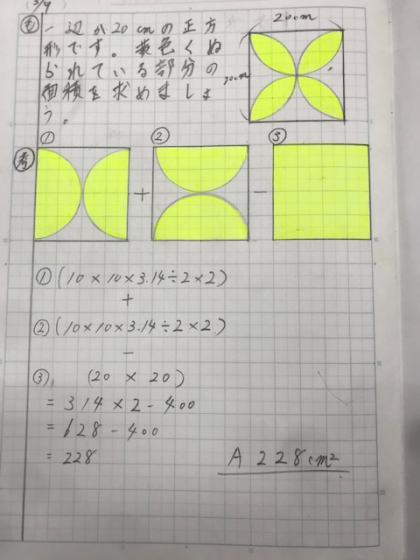 3/9
問 一辺が20cmの正方
形です。黄色くぬ
られている部分の
面積を求めましょ
う。
20cm
20cm
考 ① ② ③
+ −
①(10×10×3.14÷2×2)
+
②(10×10×3.14÷2×2)
−
③ (20 × 20)
= 314×2-400
= 628-400
= 228
A 228cm²